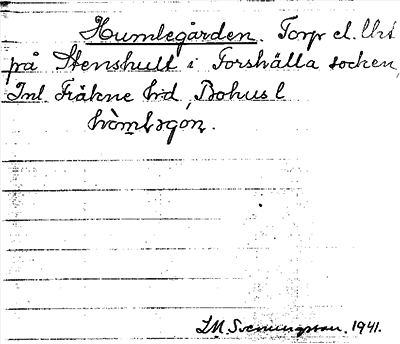 Humlegården. Torp el. Uht
på Stenshult i Forshälla socken,
Inl Fräkne hd, Bohusl
hòmləgon.
IM. Svenungsson. 1941.